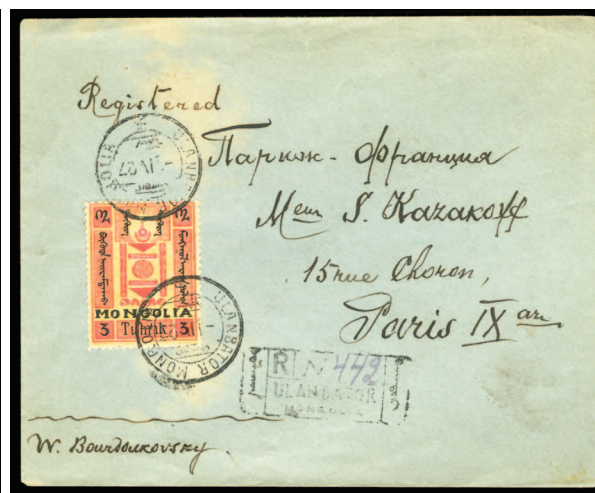 Registered
Париж - Франция
Meur S. Kazakoff
15 rue Choron,
Paris IX arr
ULANBATOR MONGOLIA
3 3
MONGOLIA
3 Tuhrik 3
ULANBATOR MONGOLIA
R № 442
ULANBATOR
MONGOLIA
W. Bourdoukovsky.